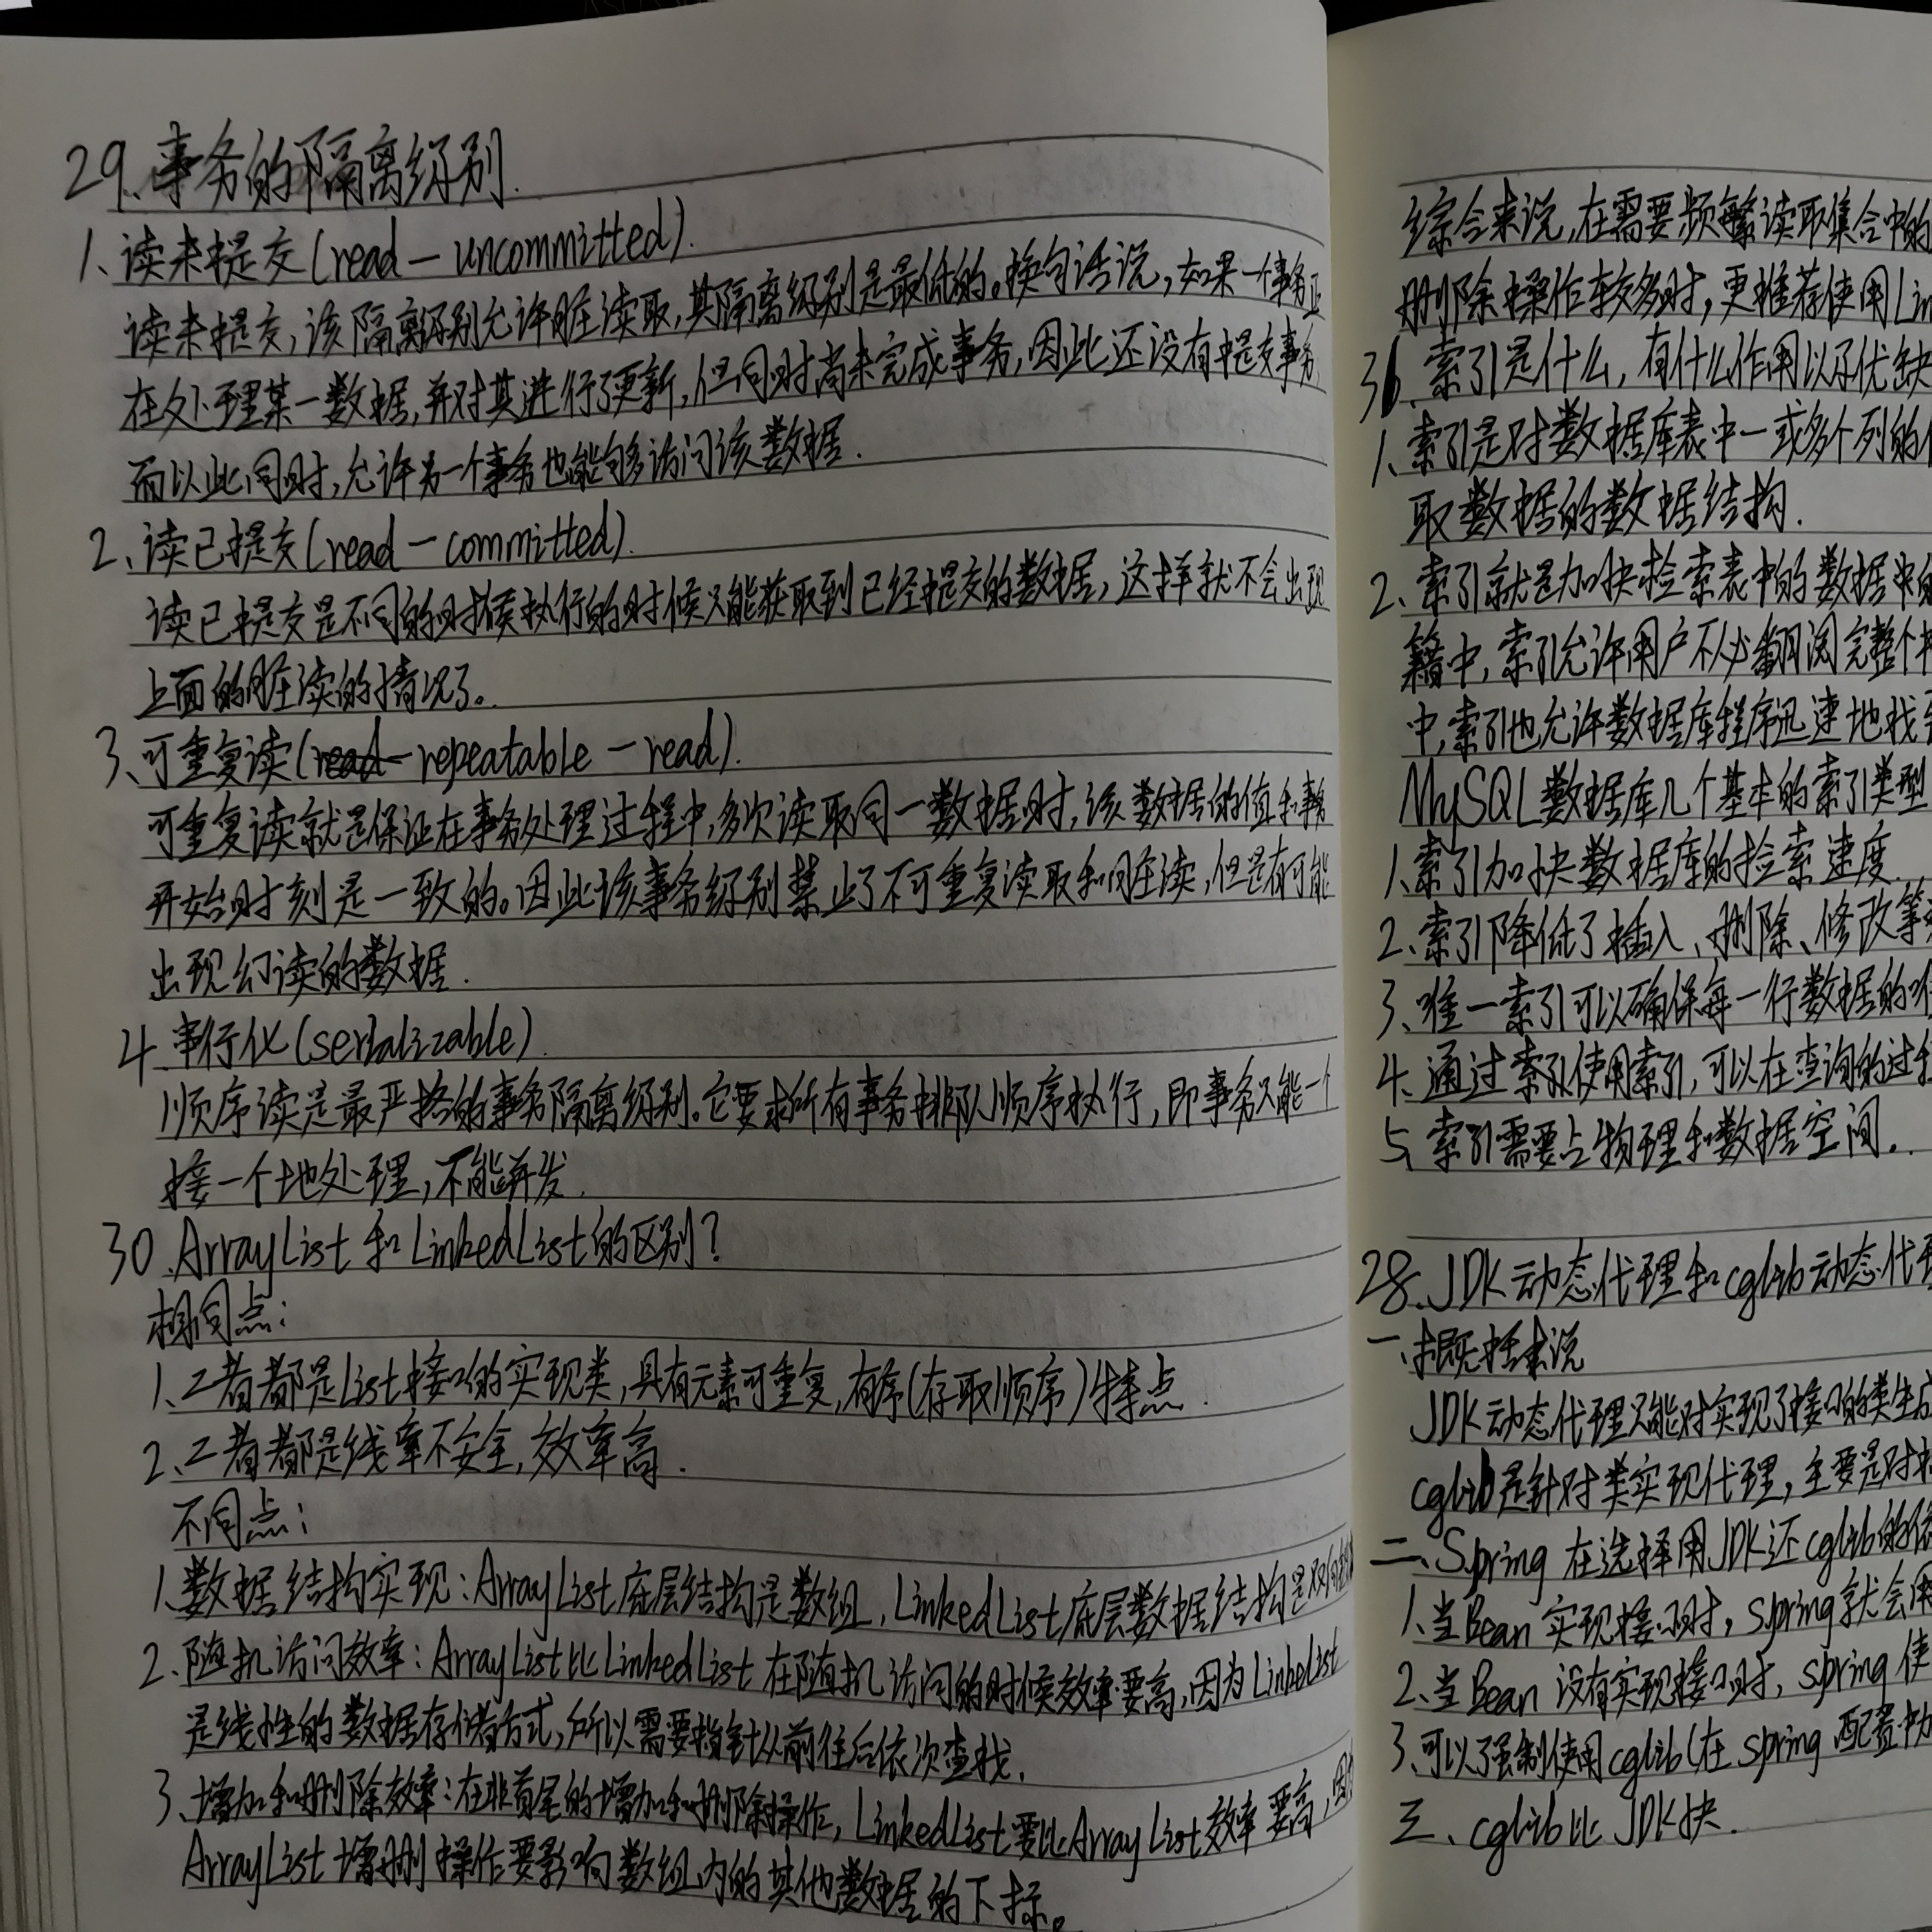 29、事务的隔离级别.
1、读未提交(read-uncommitted).
读未提交,该隔离级别允许脏读取,其隔离级别是最低的。换句话说,如果一个事务正
在处理某一数据,并对其进行了更新,但同时尚未完成事务,因此还没有提交事务,
而以此同时,允许另一个事务也能够多访问该数据.
2、读已提交(read-committed).
读已提交是不同的时候执行的时候只能获取到已经提交的数据,这样就不会出现
上面的脏读的情况了。
3、可重复读(repeatable-read).
可重复读就是保证在事务处理过程中,多次读取同一数据时,该数据的值和事务
开始时刻是一致的。因此该事务级别禁止了不可重复读取和脏读,但是有可能
出现幻读的数据.
4.串行化(serializable).
顺序读是最严格的事务隔离级别。它要求所有事务排队顺序执行,即事务只能一个
接一个地处理,不能并发.
30.ArrayList和LinkedList的区别?
相同点:
1、二者都是List接口的实现类,具有元素可重复,有序(存取顺序)特点.
2、二者都是线率不安全,效率高.
不同点:
1.数据结构实现:ArrayList底层结构是数组,LinkedList底层数据结构是双向
2.随机访问效率:ArrayList比LinkedList在随机访问的时候效率要高,因为LinkeList
是线性的数据存储方式,所以需要指针从前往后依次查找.
3、增加和删除效率:在非首尾的增加和删除操作,LinkedList要比ArrayList效率要高,因
ArrayList增删操作要影响数组内的其他数据的下标。
综合来说,在需要频繁读取集合中的
删除操作较多时,更推荐使用Lin
36、索引是什么,有什么作用以及优缺
1、索引是对数据库表中一或多个列的
取数据的数据结构.
2、索引就是加快检索表中的数据
籍中,索引允许用户不必翻阅完整个
中,索引也允许数据库程序迅速地找
MySQL数据库几个基本的索引类型
1、索引加快数据库的检索速度.
2、索引降低了插入、删除、修改等
3、唯一索引可以确保每一行数据的唯
4、通过索引使用索引,可以在查询的过
5、索引需要占物理和数据空间.
28、JDK动态代理和cglib动态代理
一、概括来说
JDK动态代理只能对实现了接口的类生
cglib是针对类实现代理,主要是对
二、Spring在选择用JDK还cglib的
1、当Bean实现接口时,spring就会用
2、当Bean没有实现接口时,spring使
3、可以强制使用cglib(在spring配置中加
三、cglib比JDK快.